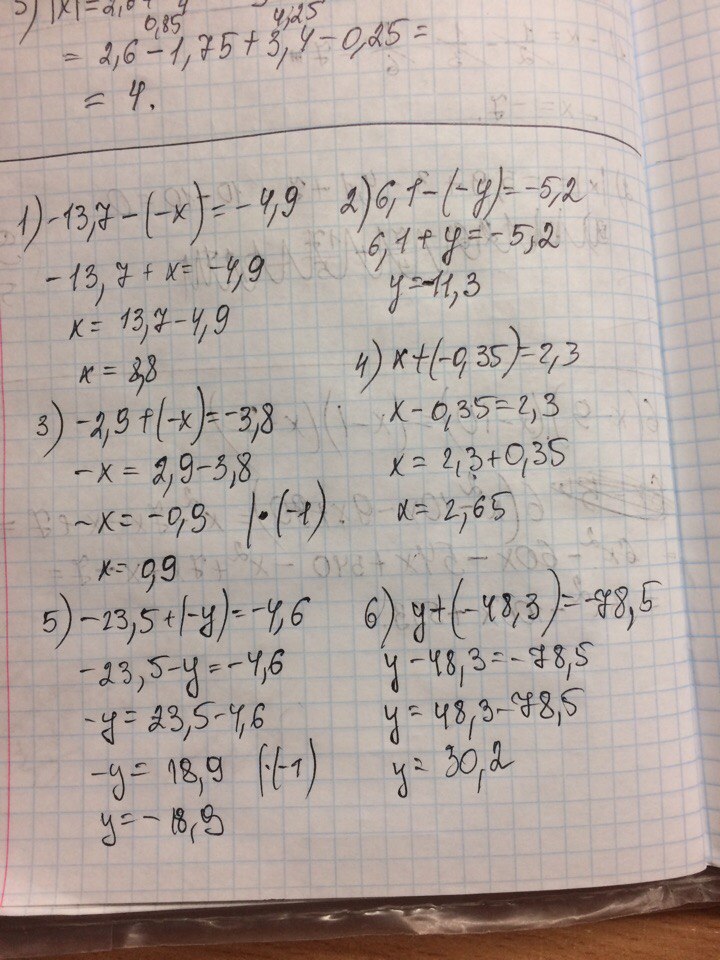 0,85 4,25
= 2,6 - 1,75 + 3,4 - 0,25 =
= 4.
1) -13,7 - (-x) = -4,9
-13,7 + x = -4,9
x = 13,7 - 4,9
x = 8,8
2) 6,1 - (-y) = -5,2
6,1 + y = -5,2
y = -11,3
3) -2,9 + (-x) = -3,8
-x = 2,9 - 3,8
-x = -0,9 | · (-1)
x = 0,9
4) x + (-0,35) = 2,3
x - 0,35 = 2,3
x = 2,3 + 0,35
x = 2,65
5) -23,5 + (-y) = -4,6
-23,5 - y = -4,6
-y = 23,5 - 4,6
-y = 18,9 | · (-1)
y = -18,9
6) y + (-48,3) = -78,5
y - 48,3 = -78,5
y = 48,3 - 78,5
y = 30,2